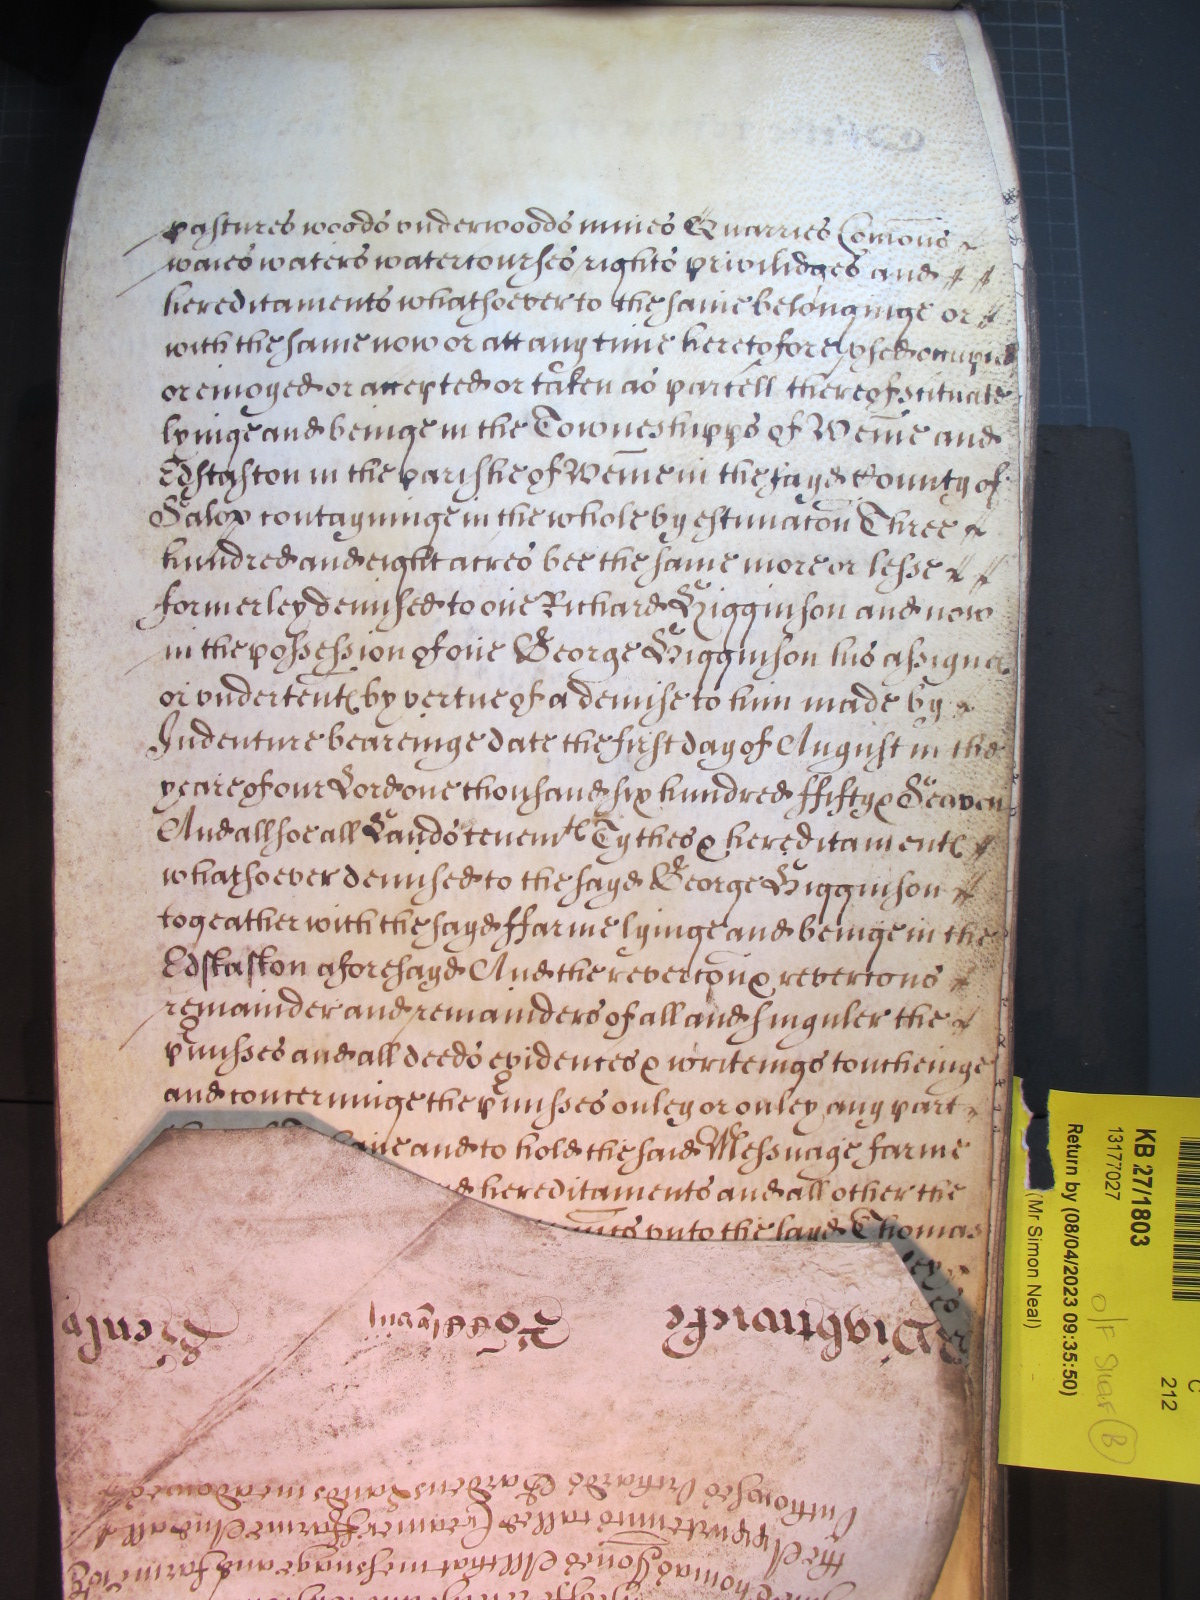 pastures woods vnderwoods mines Quarries Comons
waies waters watercourses rights priviledges and
hereditaments whatsoever to the same belonginge or
with the same now or att any time heretofore vsed occupied
or enioyed or accepted or taken as parcell thereof scituate
lyinge and beinge in the Towneshipps of Weme and
Edstaston in the parishe of Weme in the sayd County of
Salop contayninge in the whole by estimacon Three
hundred and eight acres bee the same more or lesse
formerley demised to one Richard Higginson and now
in the possession of one George Higginson his assignes
or vndertents by vertue of a demise to him made by
Indenture beareinge date the first day of August in the
yeare of our Lord one thousand six hundred ffifty & Seaven
And all soe all Lands tenemts Tythes & hereditaments
whatsoever demised to the sayd George Higginson
togeather with the sayd ffarme lyinge and beinge in the
Edstaston aforesayd And the revercon & revercons
remainder and remainders of all and singuler the
pmisses and all deeds evidences & writeings toucheinge
and concerninge the pmisses onley or onley any part
and to hold the said Messuage farme
hereditaments and all other the
vnto the sayd Thomas
Wightwicke Goddard Henly
KB 27/1803
13177027
Return by (08/04/2023 09:35:50)
(Mr Simon Neal)
O/F Shelf B
C
212
Outhowses Orchards Gardens Lands meadowes
farme And all
Thomas Jones All that messuage and farme